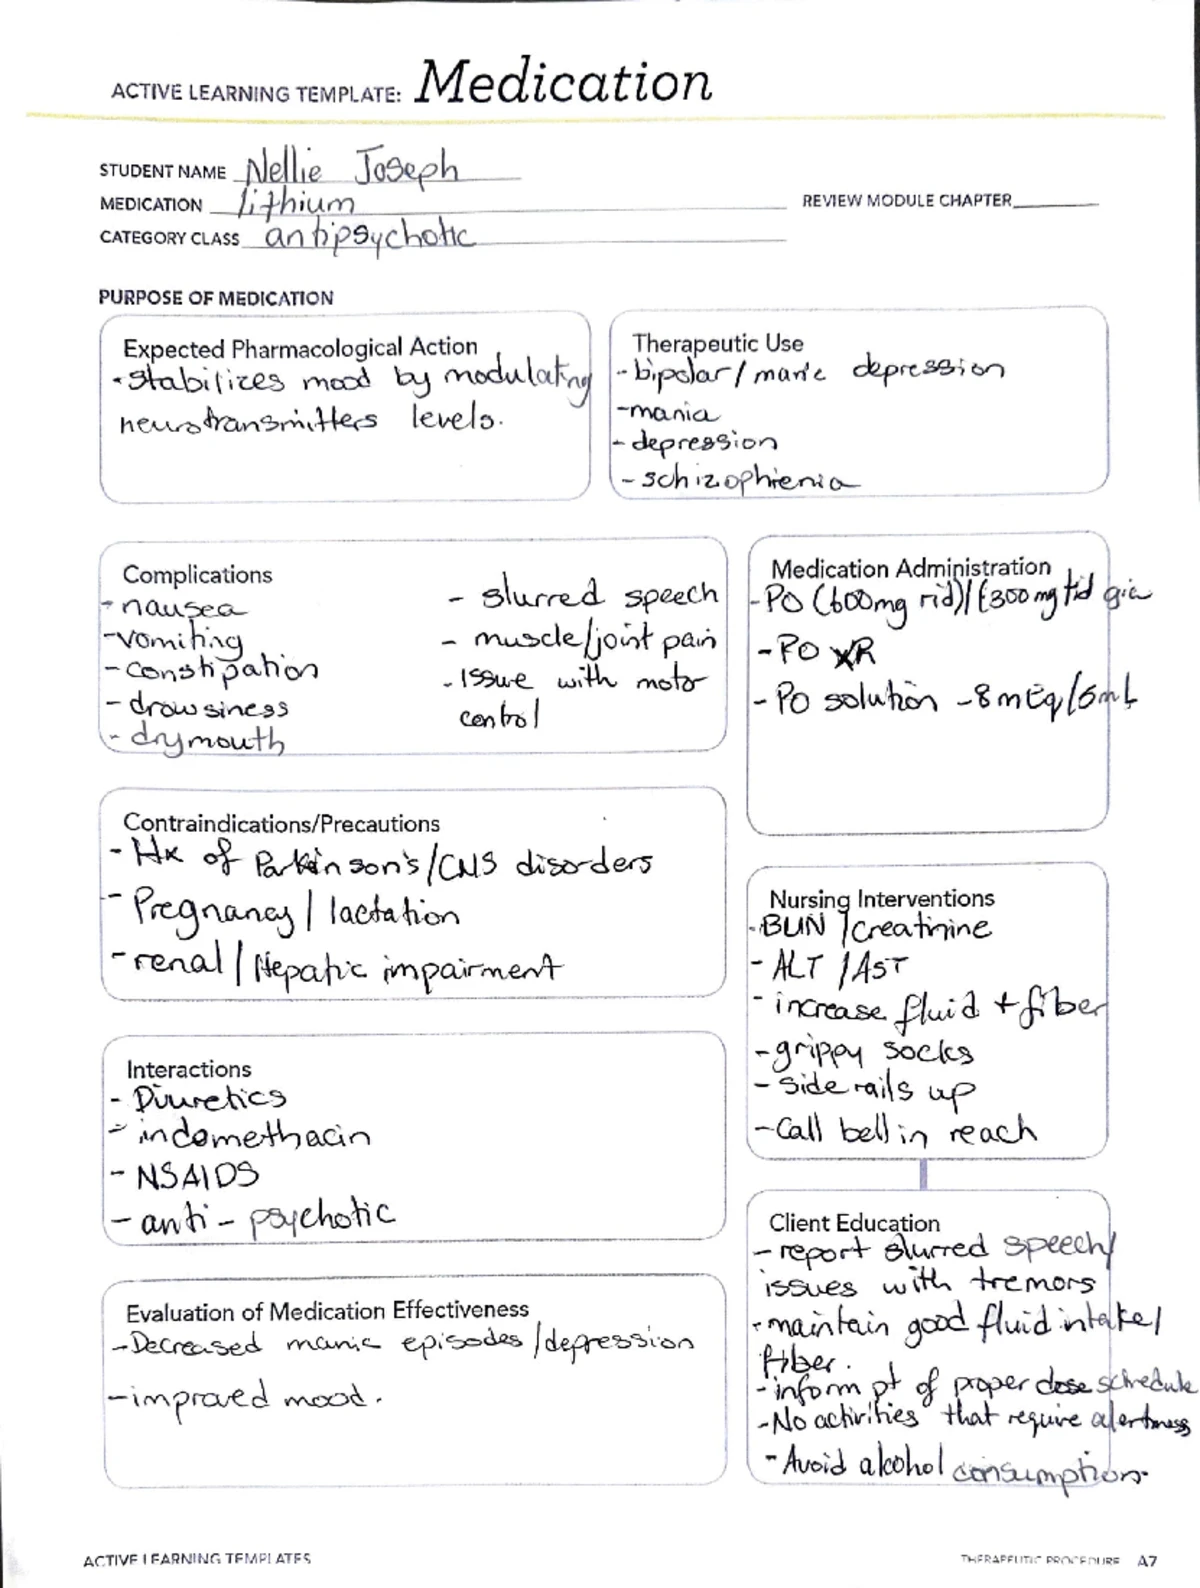 ACTIVE LEARNING TEMPLATE: Medication
STUDENT NAME Nellie Joseph
MEDICATION lithium
REVIEW MODULE CHAPTER
CATEGORY CLASS antipsychotic
PURPOSE OF MEDICATION
Expected Pharmacological Action
- stabilizes mood by modulating
neurotransmitters levels.
Therapeutic Use
- bipolar / manic depression
- mania
- depression
- schizophrenia
Complications
- nausea
- vomiting
- constipation
- drowsiness
- dry mouth
- slurred speech
- muscle/joint pain
- Issue with motor
control
Medication Administration
- PO (600mg rid)/(300 mg tid
- PO XR
- PO solution - 8 mEq/5mL
Contraindications/Precautions
- Hx of Parkinson's/CNS disorders
- Pregnancy / lactation
- renal / Hepatic impairment
Nursing Interventions
- BUN / creatinine
- ALT / AST
- increase fluid + fiber
- grippy socks
- side rails up
- Call bell in reach
Interactions
- Diuretics
- indomethacin
- NSAIDS
- anti - psychotic
Client Education
- report slurred speech/
issues with tremors
- maintain good fluid intake/
fiber.
- inform pt of proper dose schedule
- No activities that require alertness
- Avoid alcohol consumption.
Evaluation of Medication Effectiveness
- Decreased manic episodes / depression
- improved mood.
ACTIVE LEARNING TEMPLATES
THERAPEUTIC PROCEDURE A7